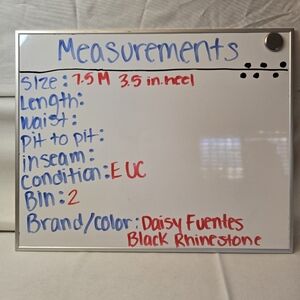 Measurements
Size: 7.5 M 3.5 in.heel
Length:
waist:
Pit to pit:
inseam:
Condition: EUC
Bin: 2
Brand/color: Daisy Fuentes
Black Rhinestone